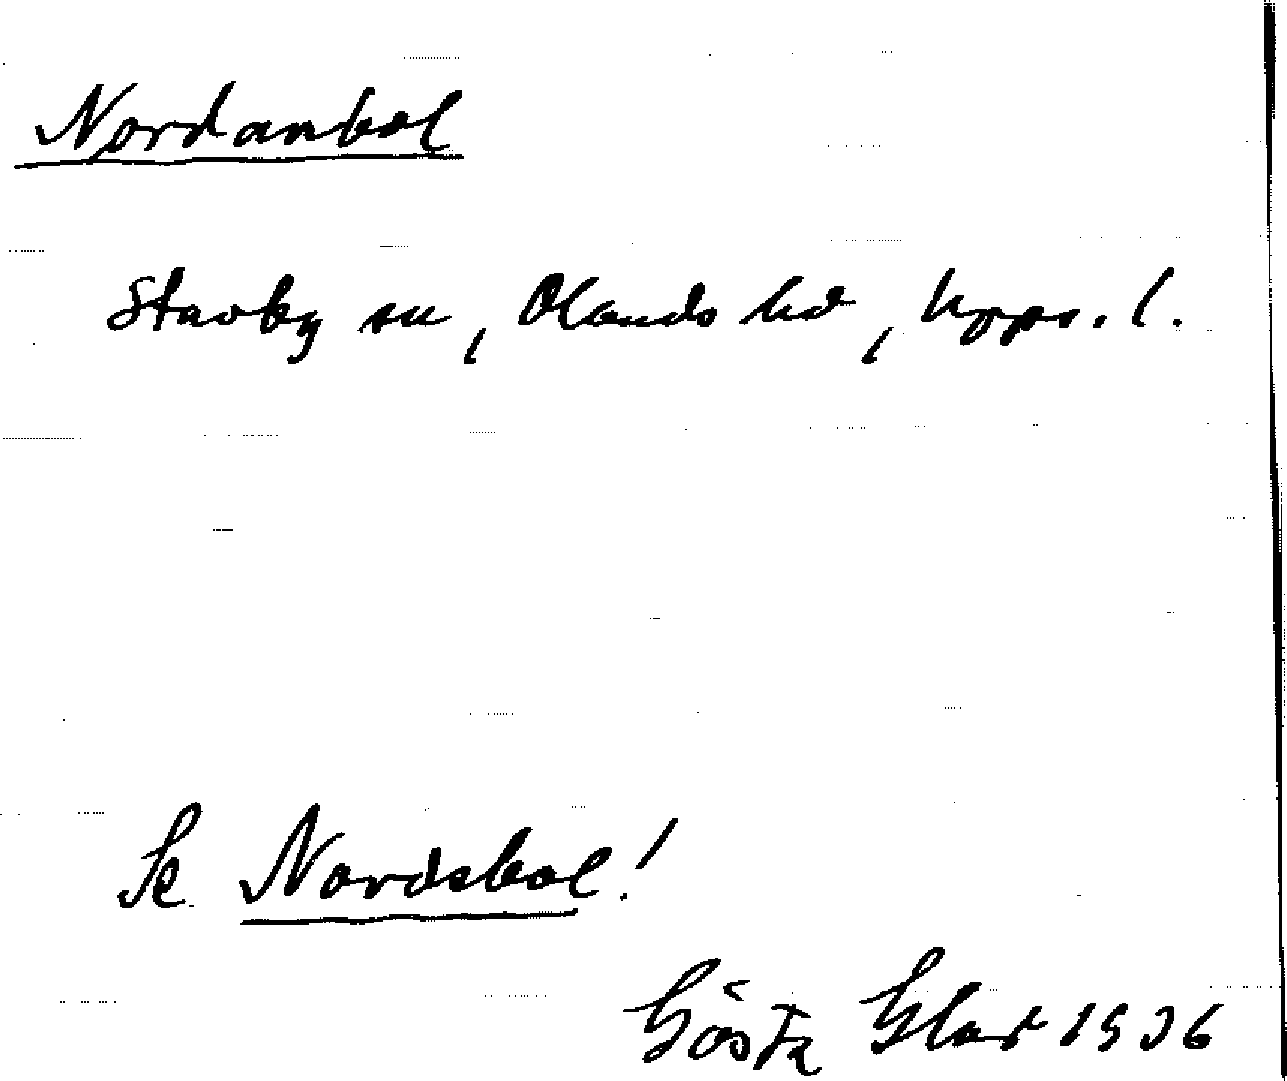 Nordanbol
Stavby sn, Olands hd, Upps. l.
Se Nordsbol!
Gösta Elar 1936